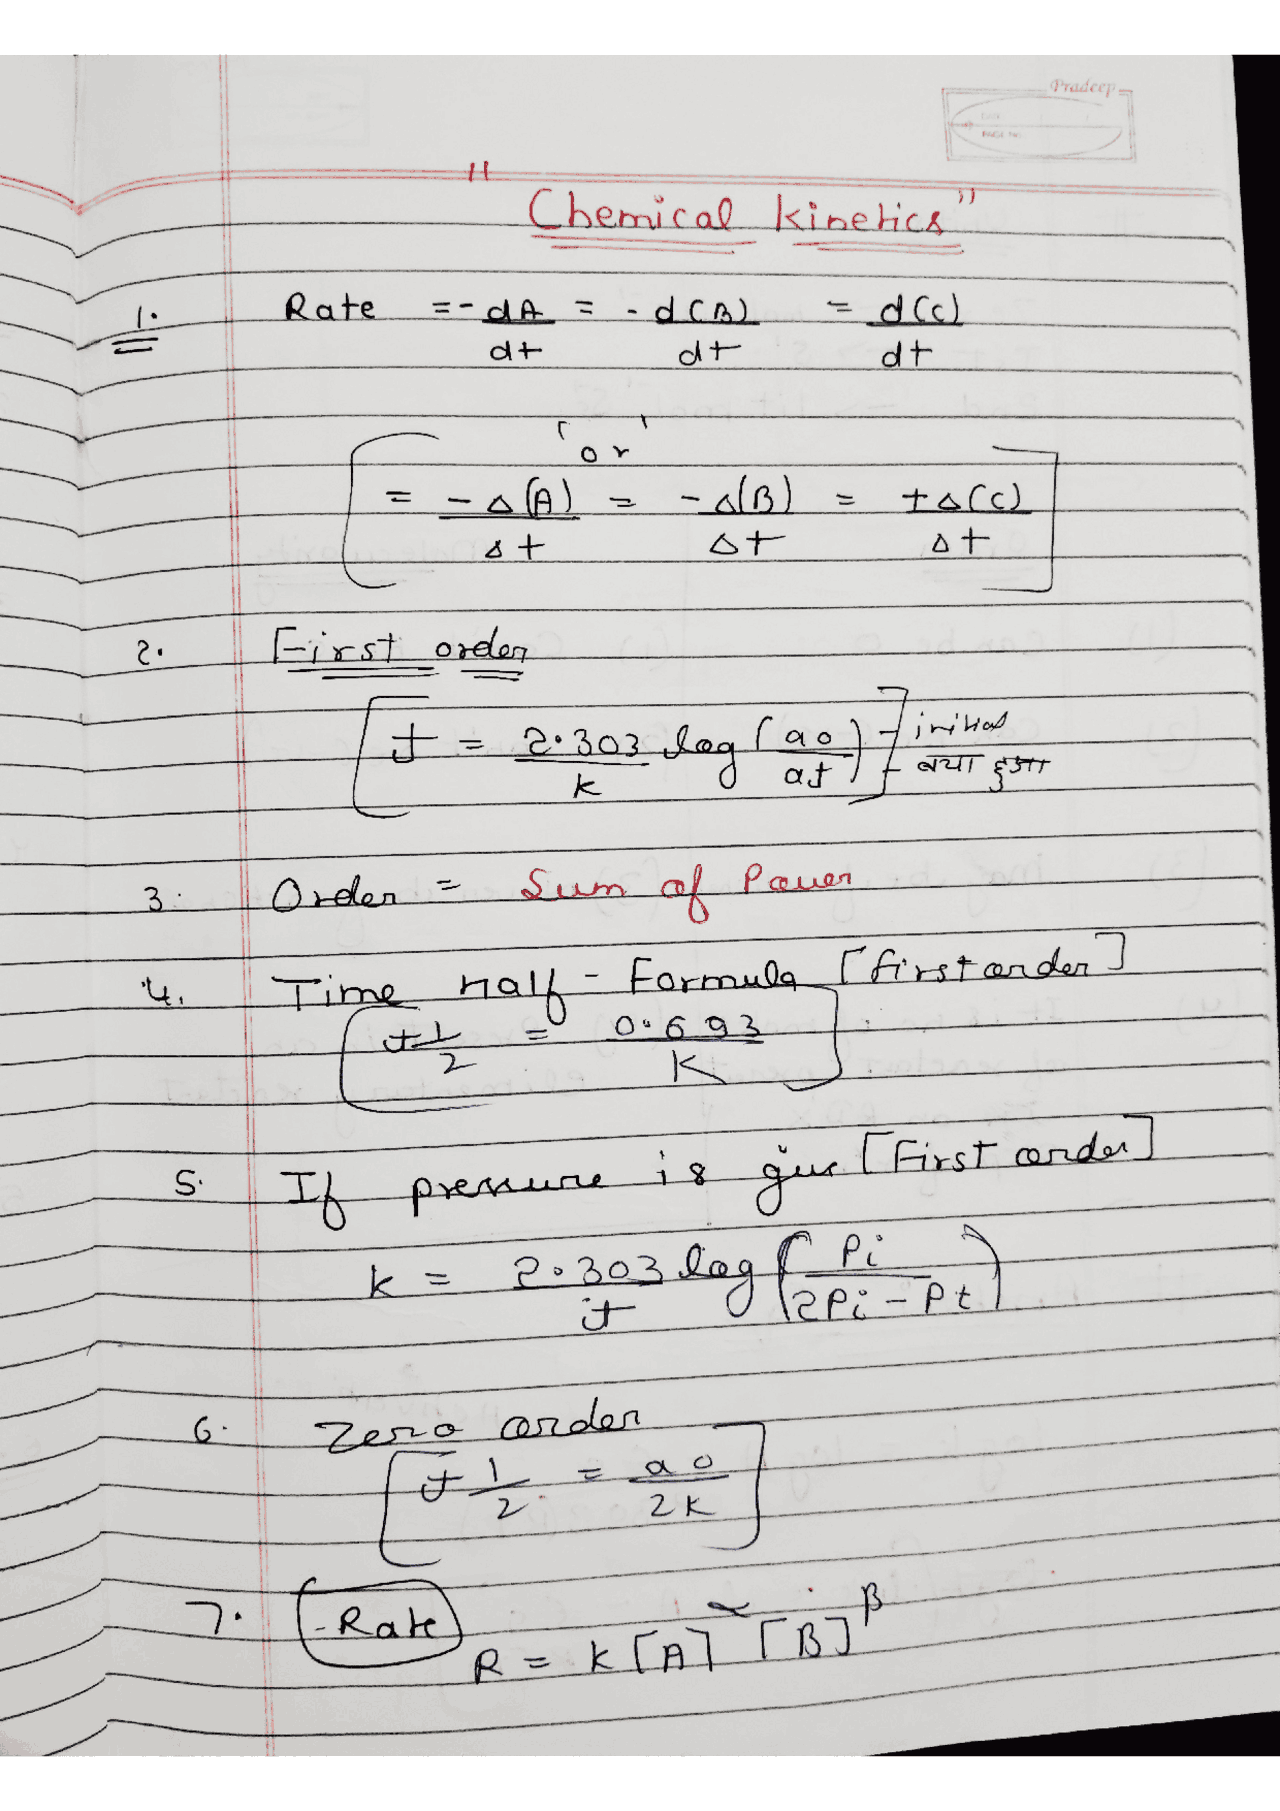 Pradeep
PAGE NO.
" Chemical kinetics"
1. Rate = - dA/dt = - d(B)/dt = d(C)/dt
'or'
= -Δ(A)/Δt = -Δ(B)/Δt = +Δ(C)/Δt
2. First order
t = 2.303/k log (a0/at) - initial
- बचा हुआ
3. Order = Sum of Power
4. Time Half - Formula [first order]
t 1/2 = 0.693/K
5. If pressure is giv [First order]
k = 2.303/t log (Pi/2Pi - Pt)
6. Zero order
t 1/2 = a0/2k
7. -Rate
R = k [A]^α [B]^β